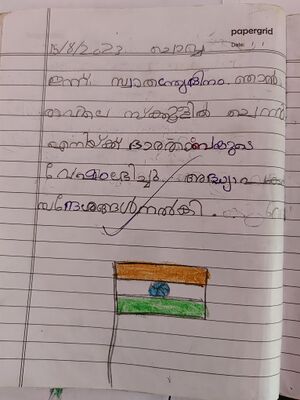 papergrid
Date: / /
15/8/2023 ചൊവ്വ
ഇന്ന് സ്വാതന്ത്ര്യദിനം. ഞാൻ
രാവിലെ സ്ക്കൂളിൽ ചെന്ന്
എനിയ്ക്ക് ഭാരതാംബയുടെ
വേഷം ലഭിച്ചു. അദ്ധ്യാപകർ
സന്ദേശങ്ങൾ നൽകി.